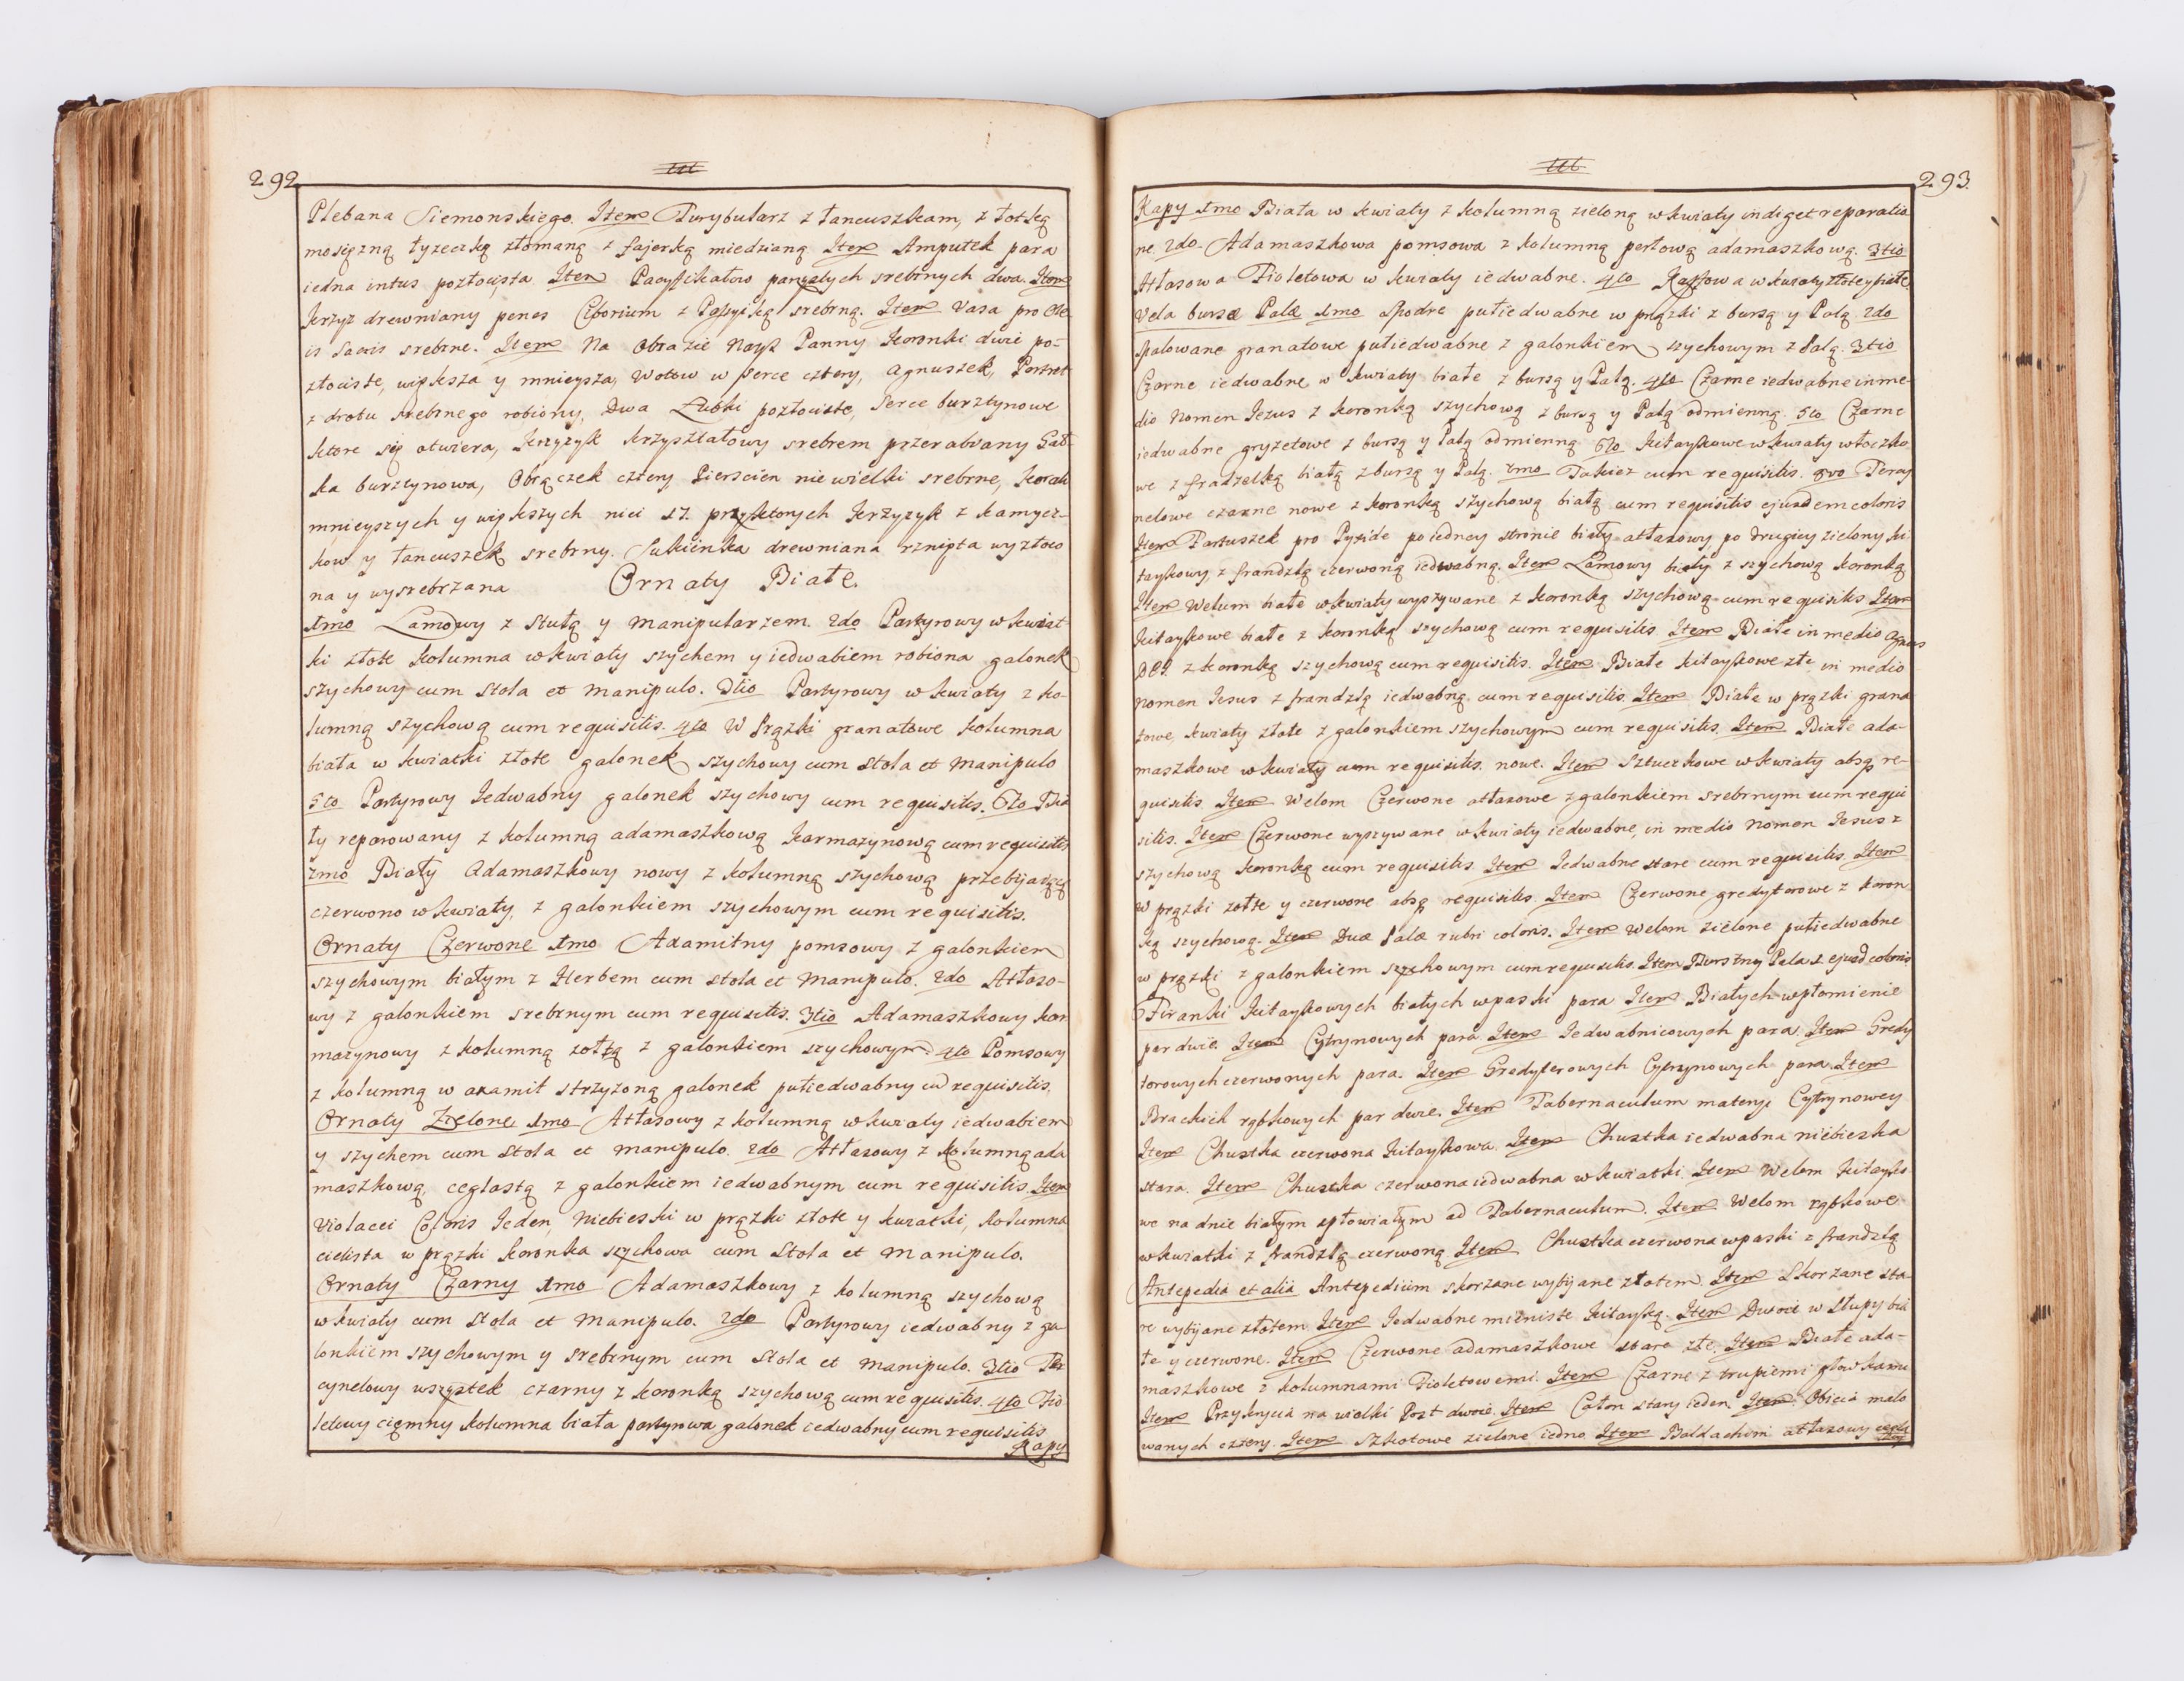 292
Plebana Siemonskiego. Item Turybularz z łancuszkam, z łotką
mosięzną łyzeczką złomaną z fajerką miedzianą Item Ampułek para
iedna intus pozłocista. Item Pacyfikałow parzystych srebrnych dwa. Item
krzyz drewniany penes Cyborium z srebrną. Item Vasa pro Ole
is Sacris srebrne. Item Na Obrazie Nays Panny Koronki dwie po-
złociste, większa y mnieysza, Wotow w serce cztery, Agnuszek, Portret
z drotu srebrnego robiony, Dwa Ząbki pozłociste, Serce bursztynowe
ktore się otwiera, Krzyzyk krzyształowy srebrem przerabiany Gał-
ka burztynowa, Obrączek cztery Pierscien niewielki srebrne, Korali
mnieyszych y większych nici 17. przy ktorych Krzyzyk z kamycz-
kow y łancuszek srebrny. Sukiénka drewniana rznięta wyzłoco
na y wysrebrzana Ornaty Białe.
1mo Lamowy z Stułą y Manipularzem. 2do Partyrowy w kwiat-
ki złote kolumna w kwiaty szychem y iedwabiem robiona galonek
szychowy cum Stola et Manipulo. 3tio Partyrowy w kwiaty z ko-
lumną szychową cum requisitis. 4to W Prązki granatowe kolumna
biała w kwiatki złote galonek szychowy cum Stola et Manipulo
5to Partyrowy Jedwabny galonek szychowy cum requisitis. 6to Bia
ły reparowany z kolumną adamaszkową karmazynową cum requisitis
7mo Biały Adamaszkowy nowy z kolumną szychową przebijaiącą
czerwono w kwiaty, z galonkiem szychowym cum requisitis.
Ornaty Czerwone 1mo Adamitny pomsowy z galonkiem
szychowym białym z Herbem cum stola et Manipulo. 2do Atłaso-
wy z galonkiem srebrnym cum requisitis. 3tio Adamaszkowy kar
mazynowy z kolumną zołtą z galonkiem szychowym 4to Pomsowy
z kolumną w axamit strzyzoną galonek pułiedwabny cū requisitis.
Ornaty Zielone 1mo Atłasowy z kolumną w kwiaty iedwabiem
y szychem cum Stola et Manipulo. 2do Atłasowy z kolumną ada
maszkową, ceglastą z galonkiem iedwabnym cum requisitis. Item
Violacei Coloris Jeden, Niebieski w prązki złote y kwiatki, kolumna
cielista w prązki koronka szychowa cum Stola et Manipulo.
Ornaty Czarny 1mo Adamaszkowy z kolumną szychową
w kwiaty cum Stola et Manipulo. 2do Partyrowy iedwabny z ga
lonkiem szychowym y srebrnym cum Stola et Manipulo. 3tio Ter
cynelowy wszystek czarny z koronką szychową cum requisitis. 4to Fio
letowy cięmny kolumna biała partyrowa galonek iedwabny cum requisitis
Kapy
293.
Kapy 1mo Biała w kwiaty z kolumną zieloną w kwiaty indiget reparatio
ne. 2do. Adamaszkowa pomsowa z kolumną perłową adamaszkową. 3tio
Atłasowa Fioletowa w kwiaty iedwabne. 4to w kwiaty złote y białe.
Vela bursæ Palæ 1mo Modre pułiedwabne w prązki z bursą y Palą. 2do
Palowane granatowe pułiedwabne z galonkiem szychowym z Palą. 3tio
Czarne iedwabne w kwiaty białe z bursą y Palą. 4to Czarne iedwabne in me-
dio Nomen Jezus z koronką szychową z bursą y Palą odmienną. 5to Czarne
iedwabne gryzetowe z bursą y Palą odmienną. 6to kitaykowe w kwiaty włoczko
we z fradzelką białą z bursą y Palą. 7mo Takiez cum requisitis. 8vo Tercy
nelowe czarne nowe z koronką szychową białą cum requisitis ejusdem coloris
Item Partuszek pro Pyxide po iedney stronie biały atłasowy po drugiey zielony ki
taykowy z frandzlą czerwoną iedwabną. Item Lamowy biały z szychową koronką
Item Welum białe w kwiaty wyszywane z koronką szychową cum requisitis Item
Kitaykowe białe z koronką szychową cum requisitis Item Białe in medio Agnus
DEI. z koronką szychową cum requisitis. Item Białe kitaykowe złe in medio
Nomen Iesus z frandzlą iedwabną cum requisitis. Item Białe w prązki grana
towe, kwiaty złote z galonkiem szychowym cum requisitis. Item Białe ada-
maszkowe w kwiaty cum requisitis. nowe. Item Sztuczkowe w kwiaty absq re-
quisitis Item Welom Czerwone atłasowe z galonkiem srebrnym cum requi
sitis. Item Czerwone wyszywane w kwiaty iedwabne, in medio Nomen Iesus z
szychową koronką cum requisitis. Item Jedwabne stare cum requisitis. Item
W prązki zołte y czerwone absq requisitis. Item Czerwone gredytorowe z koron
ką szychową. Item Duæ Palæ rubri coloris. Item Welom zielone pułiedwabne
w prązki z galonkiem szychowym cum requisitis. Item Pala 1. ejusd coloris
Firanki kitaykowych białych w paski para Item Białych w płomienie
par dwie. Item Cytrynowych para Item Jedwabnicowych para Item Gredy
torowych czerwonych para. Item Gredyterowych Cytrynowych para. Item
Brackich rąbkowych par dwie. Item Tabernaculum materyi Cytrynowey
Item Chustka czerwona kitaykowa. Item Chustka iedwabna niebieska
stara. Item Chustka czerwona iedwabna w kwiatki. Item Welom kitayko
we na dnie białym spłowiałym ad Tabernaculum. Item Welom rąbkowe
w kwiatki z frandzlą czerwoną Item Chustka czerwona w paski z frandzlą
Antepedia et alia Antepedium skorzane wybijane złotem. Item Skorzane sta-
re wybijane złotem Item Jedwabne mieniste kitayką. Item Dwoie w Słupy bia
łe y czerwone. Item Czerwone adamaszkowe stare złe. Item Białe ada-
maszkowe z kolumnami Fioletowemi Item Czarne z trupiemi głowkami
Item Przykrycia na wielki Post dwoie. Item Całon stary ieden. Item Obicia malo
wanych cztery. Item Szkotowe zielone iedno Item Baldachim atłasowy